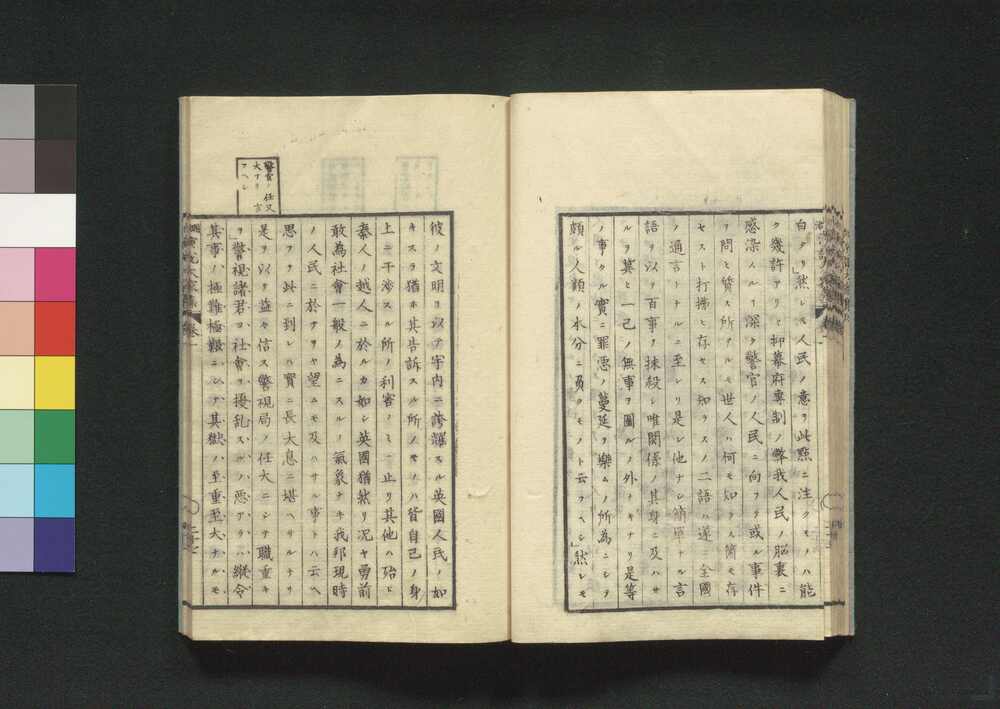 白ナリ」然レ𪜈人民ノ意ヲ此㸃ニ注クモノハ能
ク幾許アリヤ抑幕府専制ノ弊我人民ノ脳裏ニ
感染スルヿ深ク警官ノ人民ニ向ヲ或ル事件
ヲ問ヒ質ス所アルモ世人ハ何モ知ラス箇モ存
セスト打拂ヒ存セス知ラスノ二語ハ遂ニ全國
ノ通言トナルニ至レリ是レ他ナシ簡単ナル言
語ヲ以テ百事ヲ抹殺シ唯関係ノ其身ニ及ハサ
ルヲ冀ヒ一己ノ無事ヲ圖ルノ外ナキナリ是等
ノ事タル實ニ罪悪ノ蔓延ヲ樂ムノ所為ニシテ
頗ル人類ノ本分ニ負クモノト云フヘシ」然レモ
彼ノ文明ヲ以テ宇内ニ誇耀スル英國人民ノ如
キスラ猶ホ其告訴スル所ノモノハ皆自己ノ身
上ニ干渉スル所ノ利害ノミニ止リ其他ハ殆ド
秦人ノ越人ニ於ルカ如シ英國猶然リ况ヤ勇前
敢為社會一般ノ為ニスルノ氣象ナキ我邦現時
ノ人民ニ於テヲヤ望ムモ及ハサル事トハ云ヘ
思フテ此ニ到レハ實ニ長大息ニ堪ヘサルナリ
是ヲ以テ益々信ス警視局ノ任大ニシテ職重キ
ヲ」警視諸君ヨ社會ヲ擾乱スルノ悪アラハ縦令
其事ノ極難極艱ニシテ其獄ノ至重至大ナルモ
警官ノ任又
大ナリト言
フヘシ